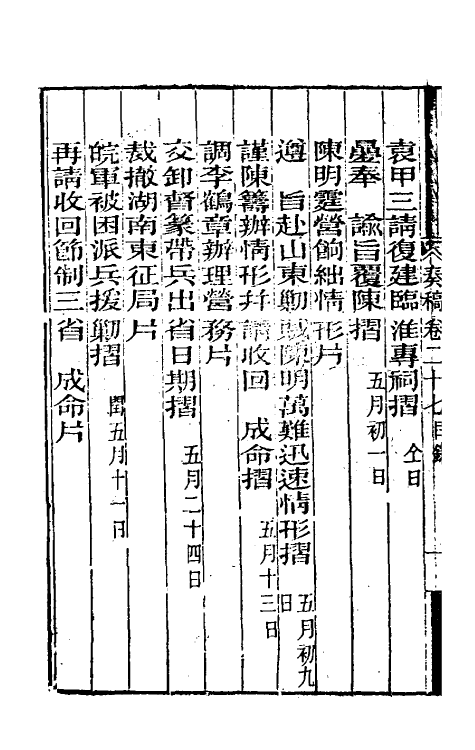 奏稿卷二十七目錄
袁甲三請復建臨淮專祠摺 仝日
疊奉 諭旨覆陳摺 五月初一日
陳明霆營餉絀情形片
遵 旨赴山東勦賊陳明萬難迅速情形摺 五月初九日
謹陳籌辦情形并請收回 成命摺 五月十三日
調李鶴章辦理營務片
交卸督篆帶兵出省日期摺 五月二十四日
裁撤湖南東征局片
皖軍被困派兵援勦摺 閏五月十一日
再請收回節制三省 成命片